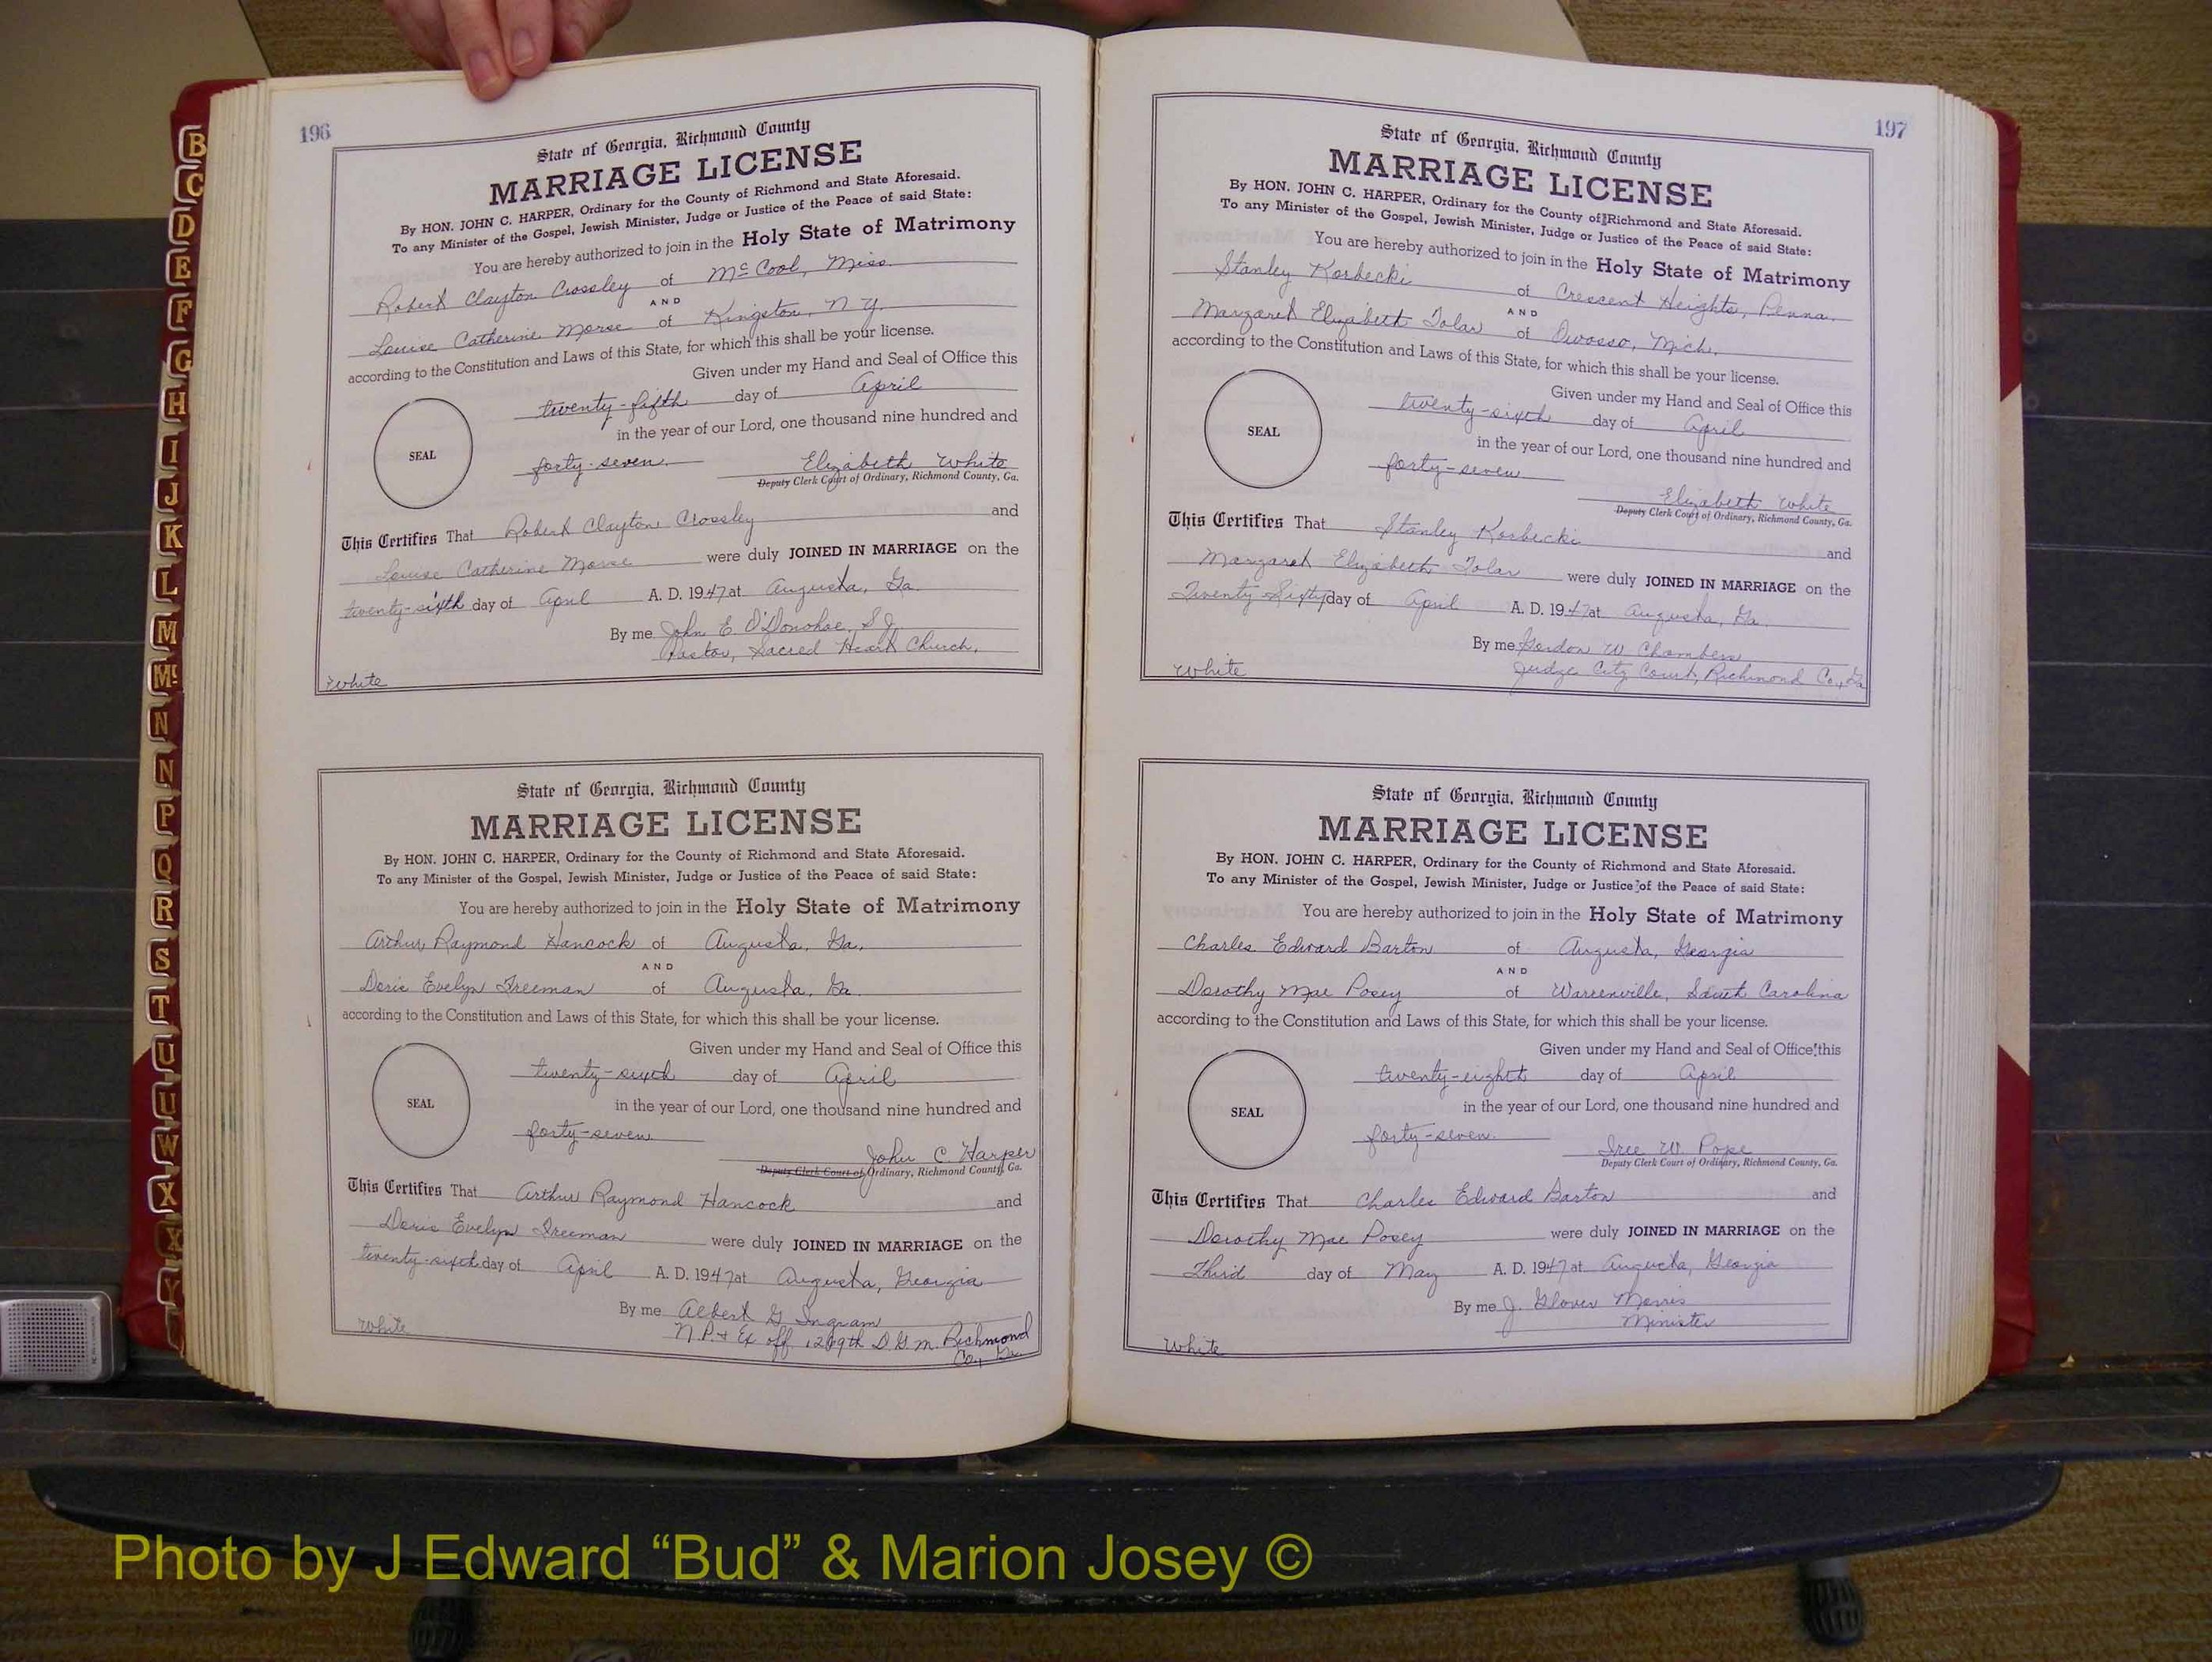 196
State of Georgia, Richmond County
MARRIAGE LICENSE
By HON. JOHN C. HARPER, Ordinary for the County of Richmond and State Aforesaid.
To any Minister of the Gospel, Jewish Minister, Judge or Justice of the Peace of said State:
You are hereby authorized to join in the Holy State of Matrimony
Robert Clayton Crossley of McCool, Miss.
AND
Louise Catherine Morse of Kingston, N.Y.
according to the Constitution and Laws of this State, for which this shall be your license.
Given under my Hand and Seal of Office this
twenty-fifth day of April
in the year of our Lord, one thousand nine hundred and
SEAL
forty-seven. Elizabeth White
Deputy Clerk Court of Ordinary, Richmond County, Ga.
This Certifies That Robert Clayton Crossley and
Louise Catherine Morse were duly JOINED IN MARRIAGE on the
twenty-sixth day of April A. D. 1947 at Augusta, Ga.
By me John E. O'Donohoe, S.J.
Pastor, Sacred Heart Church.
White
State of Georgia, Richmond County
MARRIAGE LICENSE
By HON. JOHN C. HARPER, Ordinary for the County of Richmond and State Aforesaid.
To any Minister of the Gospel, Jewish Minister, Judge or Justice of the Peace of said State:
You are hereby authorized to join in the Holy State of Matrimony
Arthur Raymond Hancock of Augusta, Ga.
AND
Doris Evelyn Freeman of Augusta, Ga.
according to the Constitution and Laws of this State, for which this shall be your license.
Given under my Hand and Seal of Office this
twenty-sixth day of April
SEAL
in the year of our Lord, one thousand nine hundred and
forty-seven.
John C. Harper
Deputy Clerk Court of Ordinary, Richmond County, Ga.
This Certifies That Arthur Raymond Hancock and
Doris Evelyn Freeman were duly JOINED IN MARRIAGE on the
twenty-sixth day of April A. D. 1947 at Augusta, Georgia
By me Albert G Ingram
N.P. & Ex off 1269th D.G.M. Richmond
Co., Ga.
White
197
State of Georgia, Richmond County
MARRIAGE LICENSE
By HON. JOHN C. HARPER, Ordinary for the County of Richmond and State Aforesaid.
To any Minister of the Gospel, Jewish Minister, Judge or Justice of the Peace of said State:
You are hereby authorized to join in the Holy State of Matrimony
Stanley Korbecki of Crescent Heights, Penna.
AND
Margaret Elizabeth Tolar of Owosso, Mich.
according to the Constitution and Laws of this State, for which this shall be your license.
Given under my Hand and Seal of Office this
twenty-sixth day of April
SEAL
in the year of our Lord, one thousand nine hundred and
forty-seven
Elizabeth White
Deputy Clerk Court of Ordinary, Richmond County, Ga.
This Certifies That Stanley Korbecki and
Margaret Elizabeth Tolar were duly JOINED IN MARRIAGE on the
Twenty Sixty day of April A. D. 1947 at Augusta, Ga.
By me Gordon W Chambers
Judge City Court, Richmond Co., Ga
White
State of Georgia, Richmond County
MARRIAGE LICENSE
By HON. JOHN C. HARPER, Ordinary for the County of Richmond and State Aforesaid.
To any Minister of the Gospel, Jewish Minister, Judge or Justice of the Peace of said State:
You are hereby authorized to join in the Holy State of Matrimony
Charles Edward Barton of Augusta, Georgia
AND
Dorothy Mae Posey of Warrenville, South Carolina
according to the Constitution and Laws of this State, for which this shall be your license.
Given under my Hand and Seal of Office this
twenty-eight day of April
SEAL
in the year of our Lord, one thousand nine hundred and
forty-seven.
W. Pope
Deputy Clerk Court of Ordinary, Richmond County, Ga.
This Certifies That Charles Edward Barton and
Dorothy Mae Posey were duly JOINED IN MARRIAGE on the
Third day of May A. D. 1947 at Augusta, Georgia
By me J. Glover Morris
Minister
White
B
C
D
E
F
G
H
I
J
K
L
M
Mc
N
N
P
Q
R
S
T
U
U
W
X
X
Y
Photo by J Edward “Bud” & Marion Josey ©